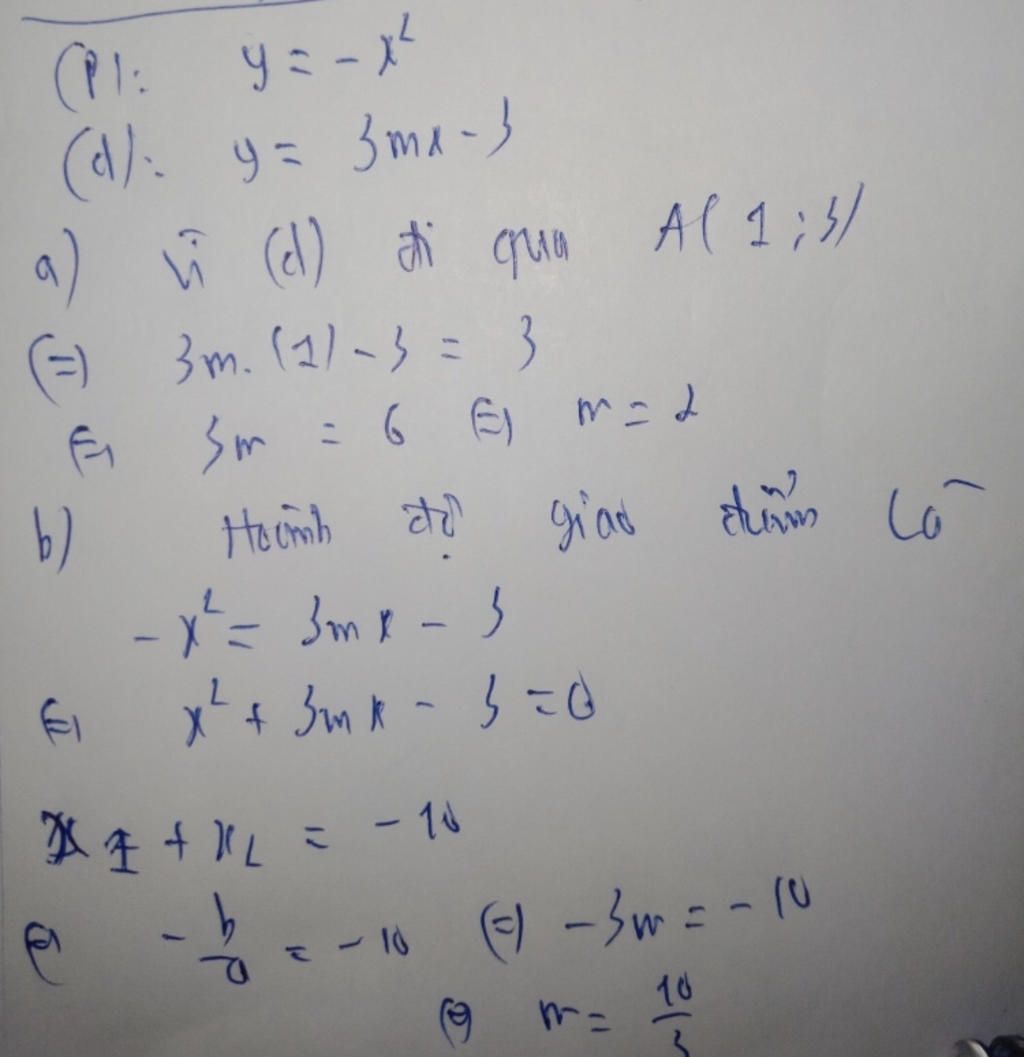 (P): y = -x²
(d): y = 3mx - 3
a) Vì (d) đi qua A(1;3)
(=) 3m.(1) - 3 = 3
(=) 3m = 6 (=) m = 2
b) Hoành độ giao điểm có
-x² = 3mx - 3
(=) x² + 3mx - 3 = 0
x1 + x2 = -10
(=) -b/a = -10 (=) -3m = -10
(=) m = 10/3